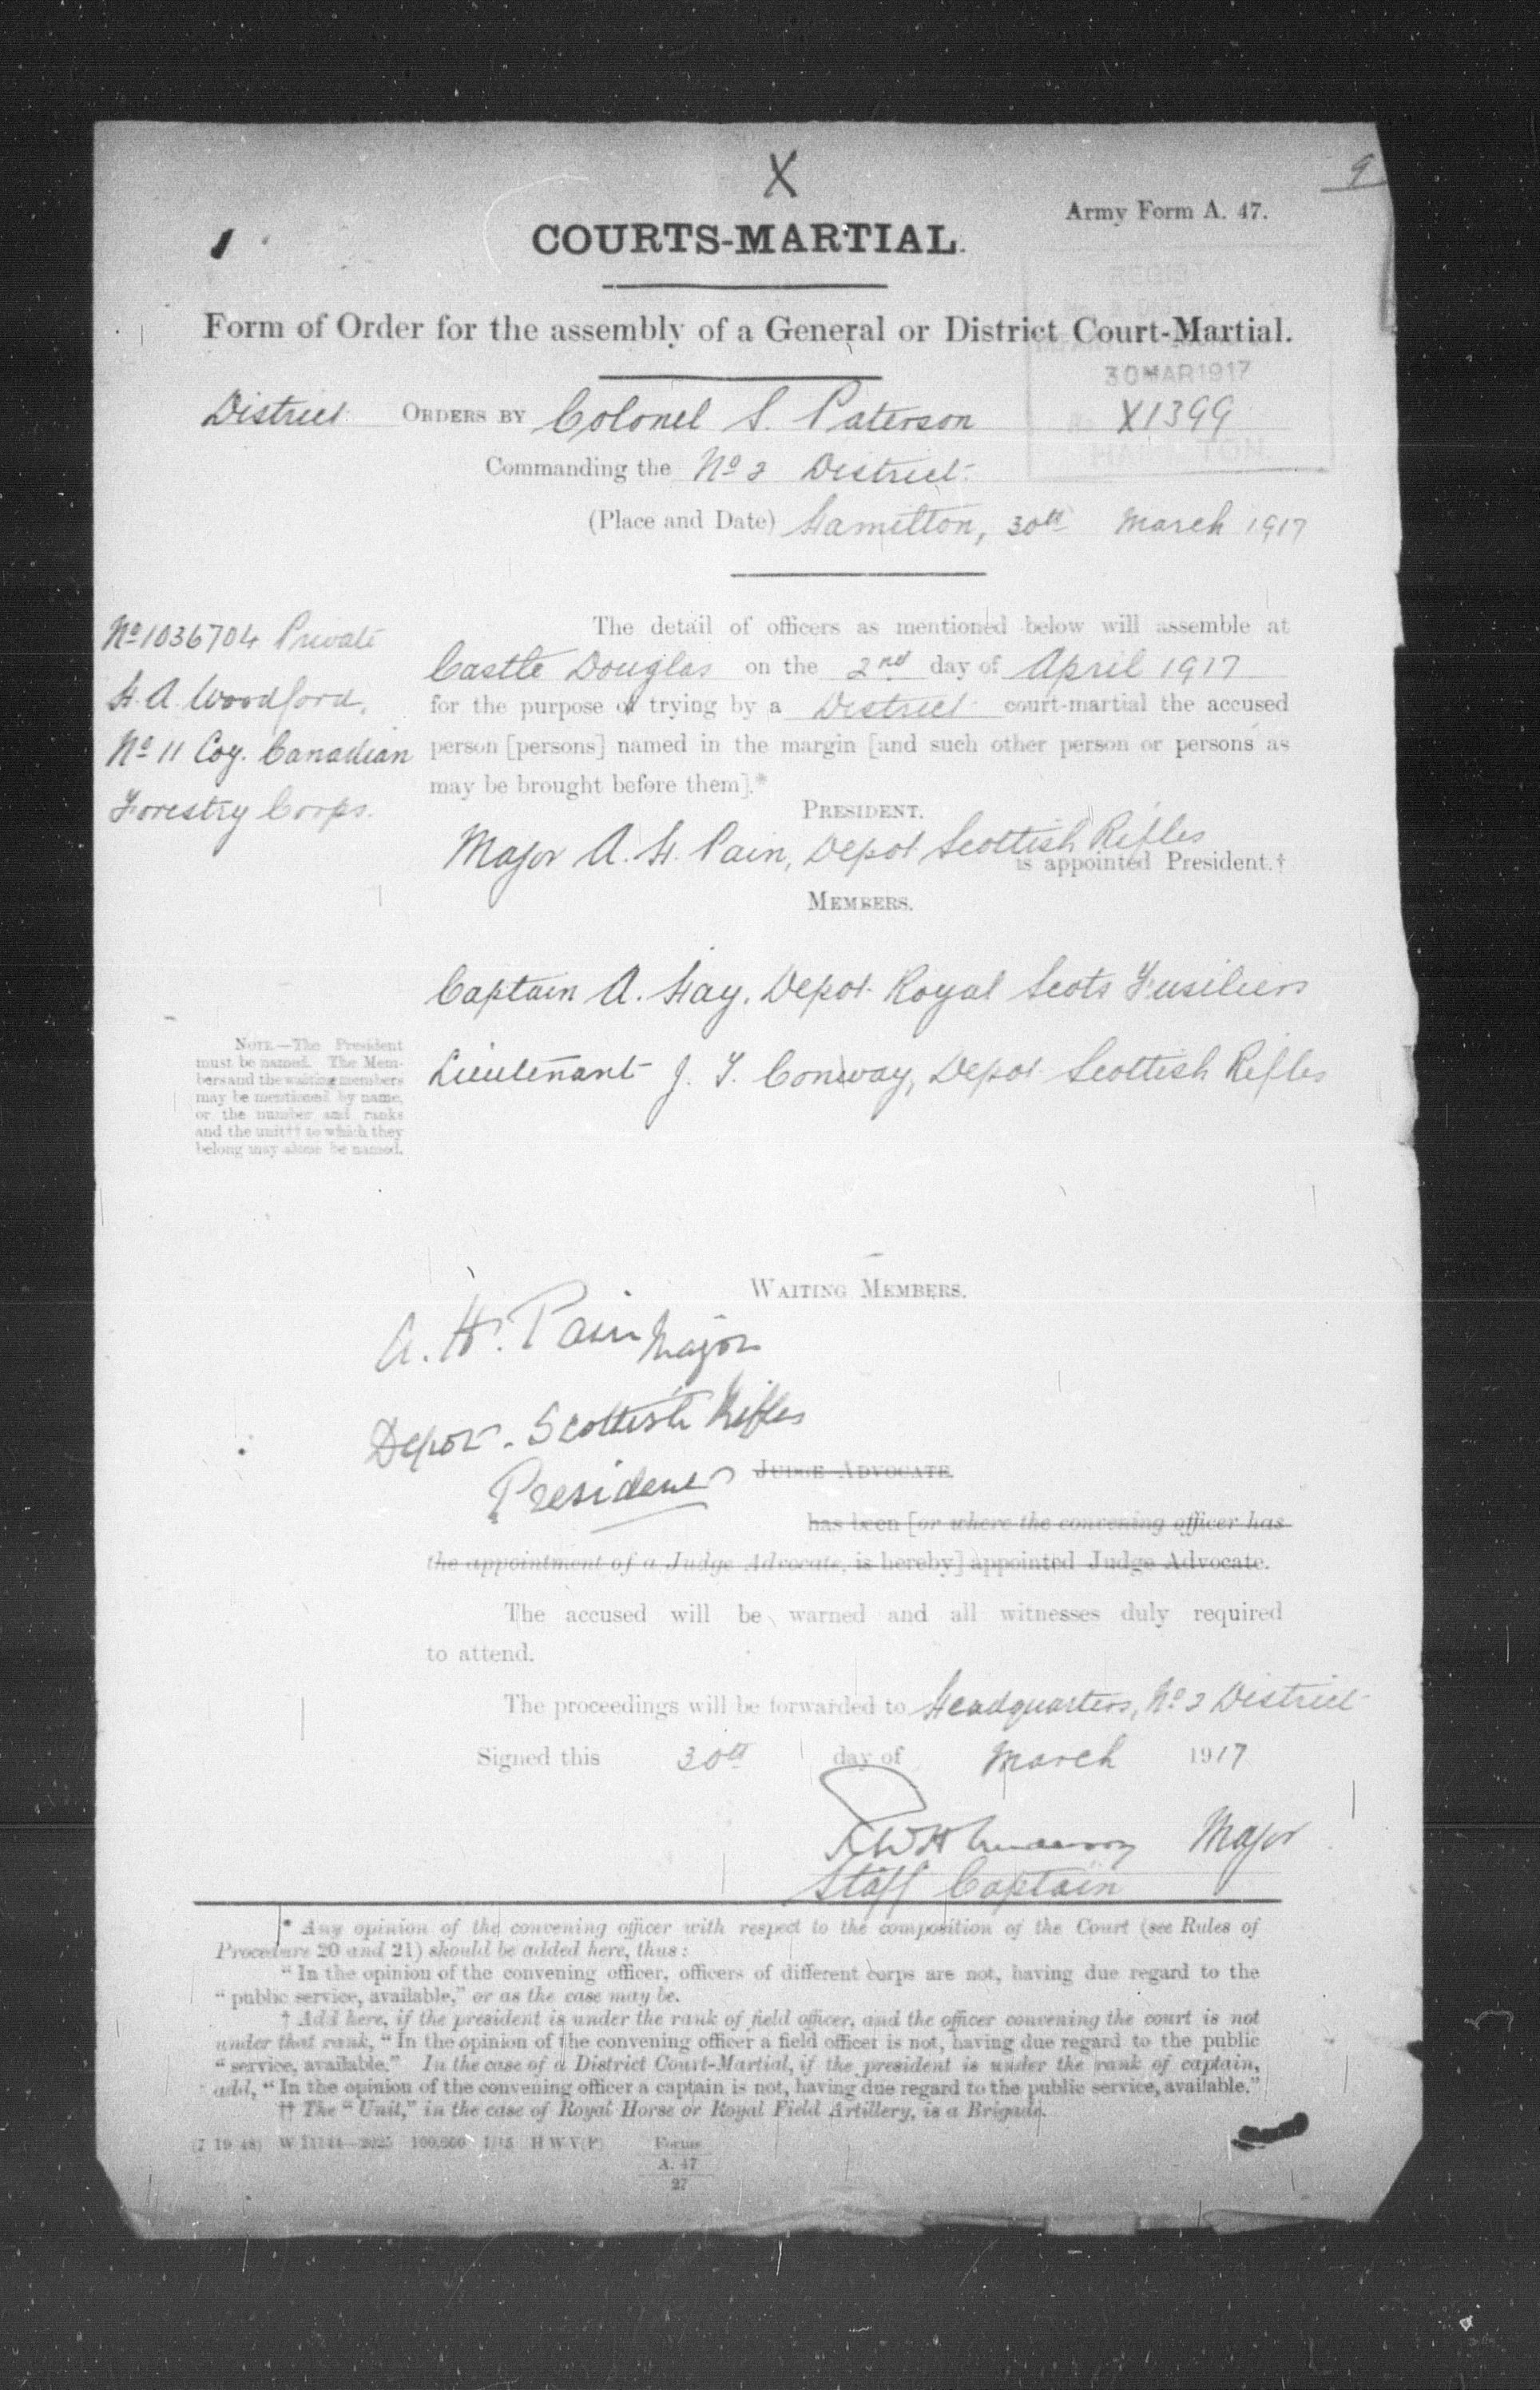 X
9
Army Form A. 47.
COURTS-MARTIAL.
Form of Order for the assembly of a General or District Court-Martial.
30 MAR 1917
District ORDERS BY Colonel S. Paterson
X1399
HAMILTON
Commanding the No 2 District.
(Place and Date) Hamilton, 30th March 1917
No 1036704 Private
H. A. Woodford,
No 11 Coy. Canadian
Forestry Corps.
The detail of officers as mentioned below will assemble at
Castle Douglas on the 2nd day of April 1917
for the purpose of trying by a District court-martial the accused
person [persons] named in the margin [and such other person or persons as
may be brought before them].*
PRESIDENT.
Major A. H. Pain, Depot Scottish Rifles
is appointed President.†
MEMBERS.
Captain A. Hay, Depot Royal Scots Fusiliers
Lieutenant J. T. Conway, Depot Scottish Rifles
NOTE.—The President
must be named. The Mem-
bers and the waiting members
may be mentioned by name,
or the number and ranks
and the unit†† to which they
belong may alone be named.
WAITING MEMBERS.
A. H. Pain Major
Depot. Scottish Rifles
President
JUDGE ADVOCATE.
has been [or where the convening officer has
the appointment of a Judge Advocate, is hereby] appointed Judge Advocate.
The accused will be warned and all witnesses duly required
to attend.
The proceedings will be forwarded to Headquarters, No 2 District
Signed this 30th day of March 1917
Major
Staff Captain
* Any opinion of the convening officer with respect to the composition of the Court (see Rules of
Procedure 20 and 21) should be added here, thus:
"In the opinion of the convening officer, officers of different corps are not, having due regard to the
"public service, available," or as the case may be.
† Add here, if the president is under the rank of field officer, and the officer convening the court is not
under that rank, "In the opinion of the convening officer a field officer is not, having due regard to the public
"service, available." In the case of a District Court-Martial, if the president is under the rank of captain,
add, "In the opinion of the convening officer a captain is not, having due regard to the public service, available."
†† The "Unit," in the case of Royal Horse or Royal Field Artillery, is a Brigade.
(7 19 48) 100,000 1/15 H W V(P)
Forms
A. 47
27